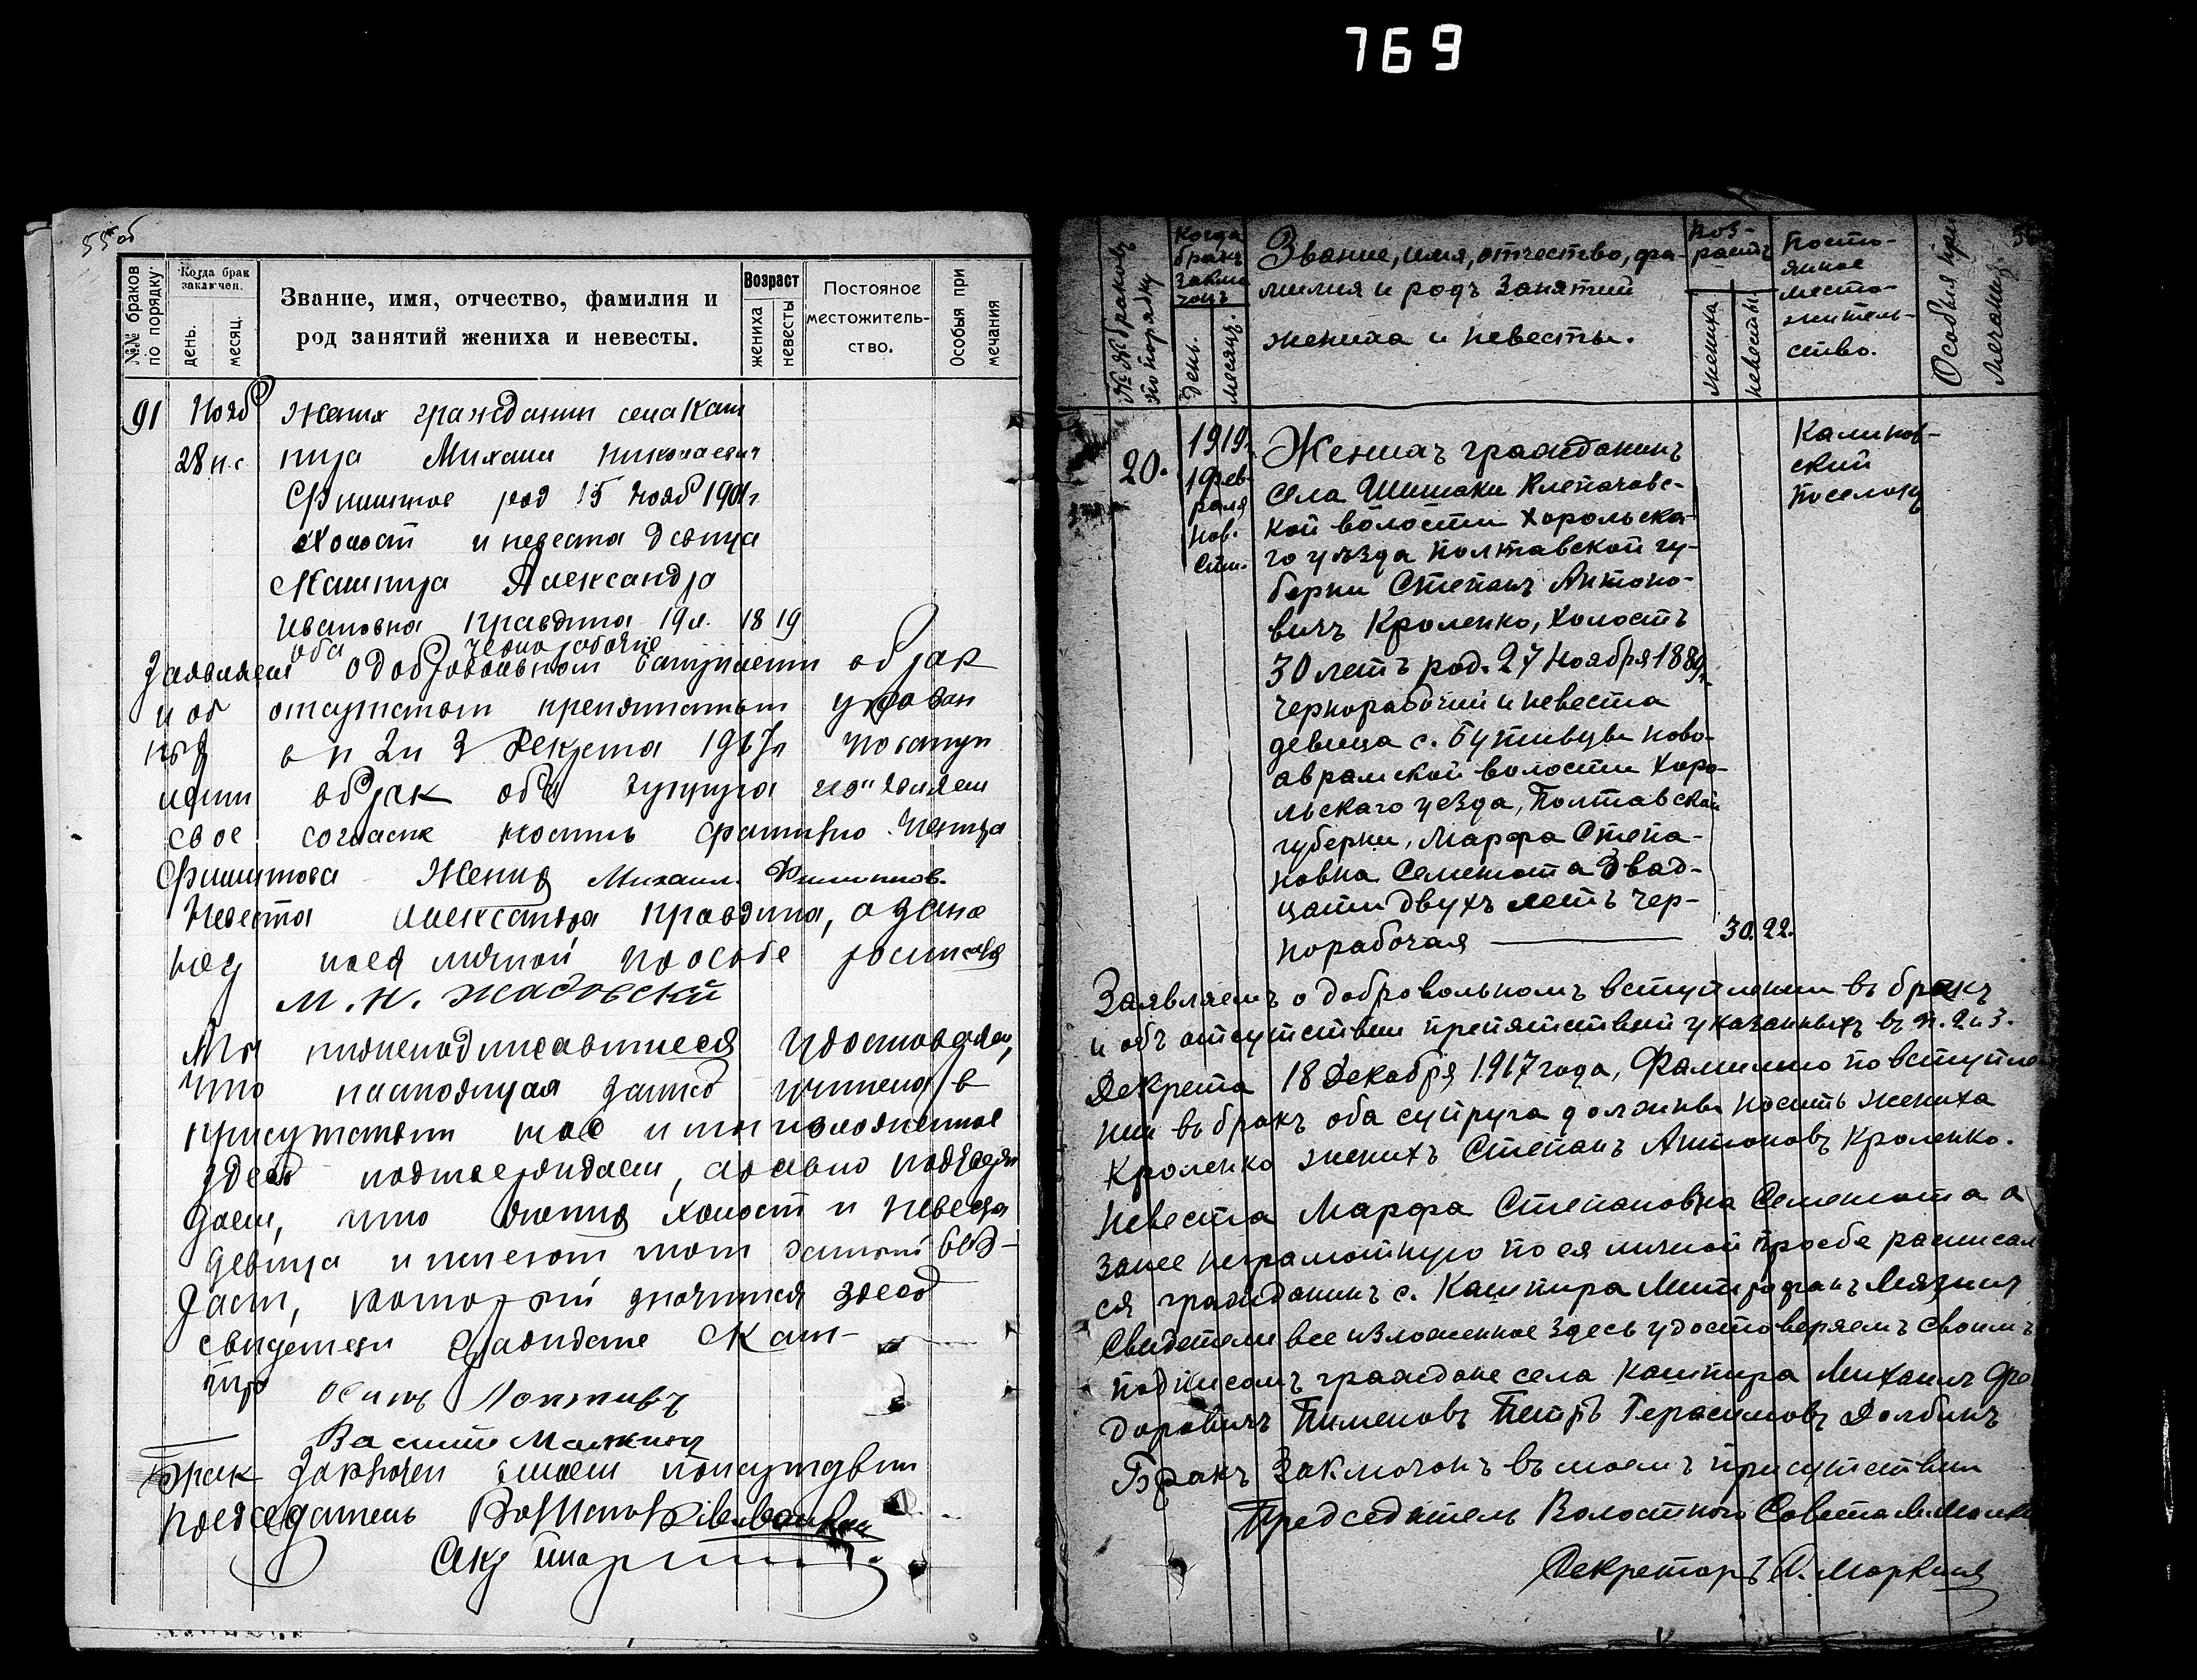 769
55 об
№№ браков по порядку.
Когда брак заключен.
день.
месяц.
Звание, имя, отчество, фамилия и
род занятий жениха и невесты.
Возраст
жениха
невесты
Постояное
местожитель-
ство.
Особыя при
мечания
91 Нояб Жених гражданин села Каш
28 н.с. пира Михаил Николаевич
род 15 Нояб 1901 г
Холост и невеста девица
Кашпира Александра
Ивановна Правдина 19 л. 18 19
оба чернорабочие
Заявляем о добровольном вступлении в брак
и об отсутствии препятствий указан
ных в п 2 и 3 Декрета 1917 г По вступ
в брак оба супруга
свое согласие носить фамилию Жениха
Филиппова Жених Михаил Филиппов.
Невеста Александра Правдина, а за не
нея личной просьбе
М. Н. Жадовский
Мы нижеподписавшиеся удостоверяем,
что настоящая запись учинена в
присутствии нас и изложенное
здесь подтверждаем, а равно подтверж
даем, что жених холост и невеста
девица и имеют тот самый воз-
раст, который значится здесь
свидетели граждане с Каш-
пир Осип Лоптивъ
Брак заключен в моем присутствии
Председатель
№№ браковъ по порядку
Когда бракъ заключонъ
День.
Месяцъ.
Звание, имя, отчество, фа-
милия и родъ занятий
жениха и невесты.
Воз-
растъ
жениха
невесты
Посто-
янное
место-
житель-
ство.
Особыя при
мечания.
20. 1919. Женихъ гражданинъ Калинов-
1 фев- села Шишаки Клепачовс- ский
раля кой волости Хорольска- поселокъ
нов. го уезда Полтавской гу-
стил. бернии Степанъ Антоно-
вичъ Кроленко, холостъ
30 летъ род. 27 Ноября 1889 г.
чернорабочий и невеста
девица с. Бутивцы ново-
аврамской волости Хоро-
льскаго уезда, Полтавской
губернии, Марфа Степа-
новна Семенота двад-
цати двухъ летъ чер-
норабочая 30. 22.
Заявляемъ о добровольномъ вступлении въ бракъ
и объ отсутствии препятствий указанныхъ въ п. 2 и 3.
Декрета 18 Декабря 1917 года, Фамилию по вступле
нии въ бракъ оба супруга должны носить жениха
Кроленко женихъ Степанъ Антоновъ Кроленко.
Невеста Марфа Степановна Семенота а
за нее неграмотную по ея личной просьбе расписал
ся гражданинъ с. Кашпира Митрофанъ
Свидетели все изложенное здесь удостоверяемъ своимъ
подписомъ граждане села Кашпира Михаилъ Фе
доровичъ Пименовъ Петръ Герасимовъ Долбинъ
Бракъ Заключонъ въ моемъ присутствии
Председатель Волостного Совета
Секретаръ А. Маркинъ